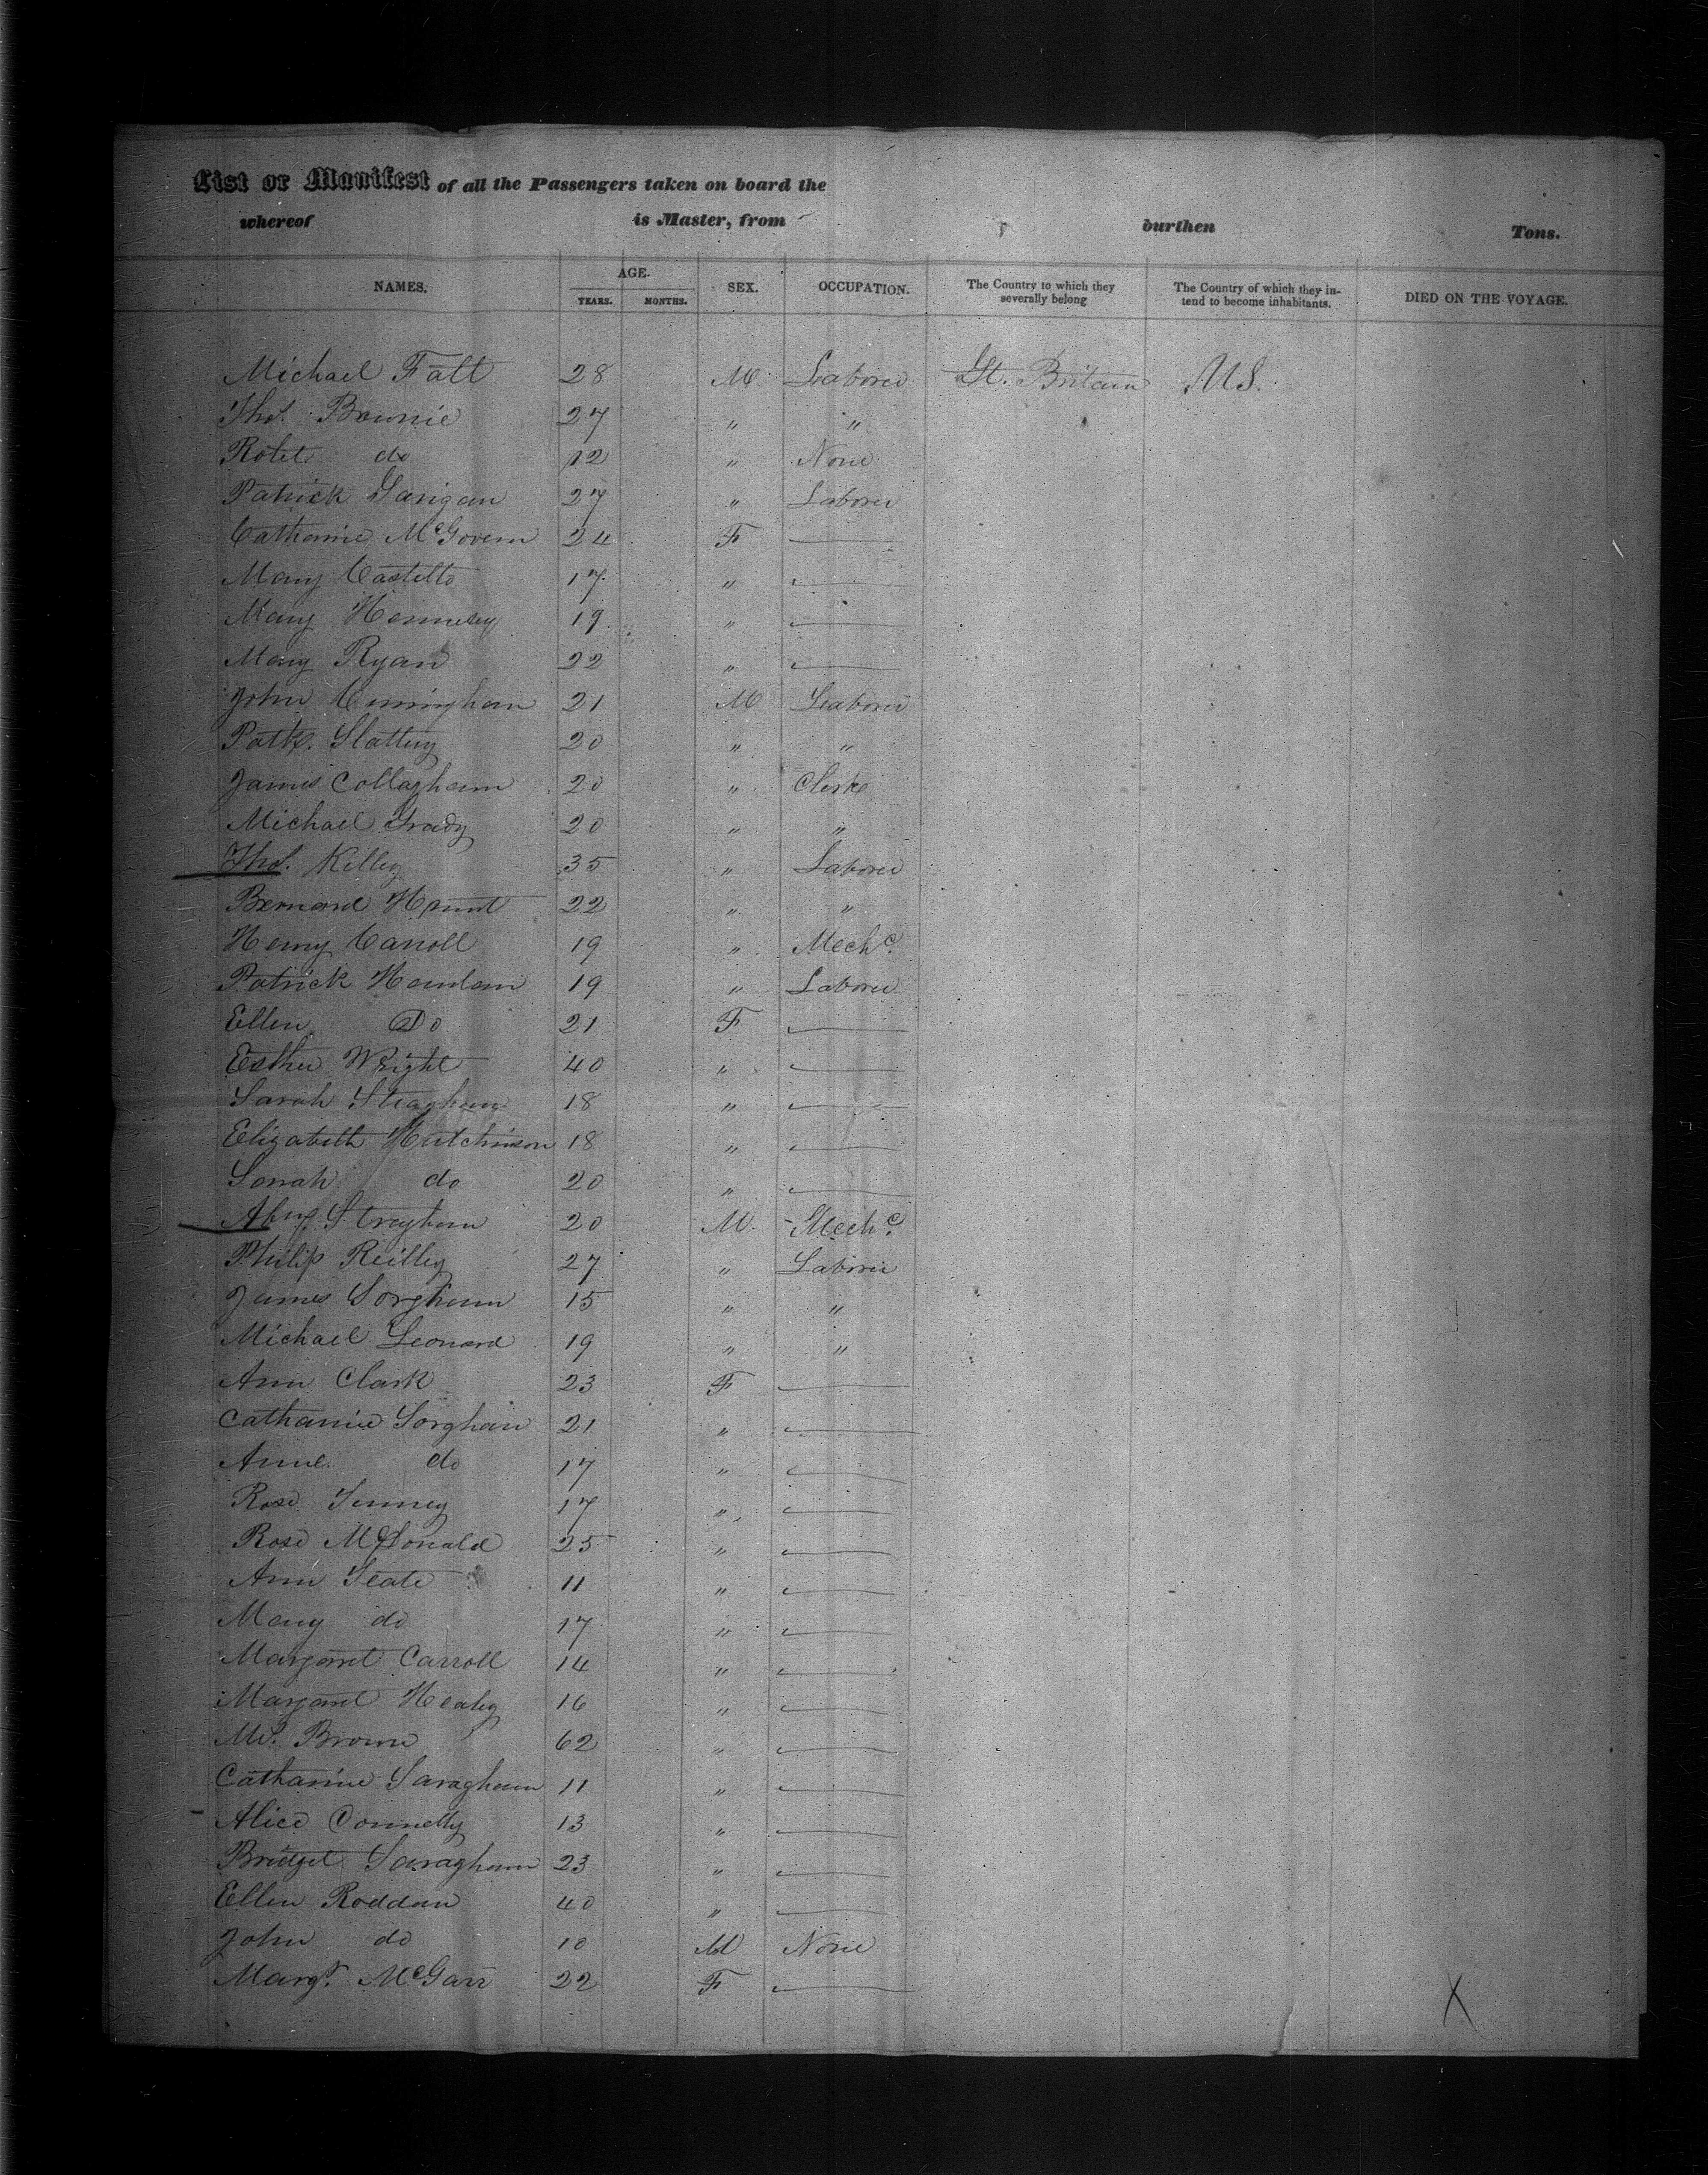 List or Manifest of all the Passengers taken on board the
whereof is Master, from burthen Tons.
NAMES. AGE. YEARS. MONTHS. SEX. OCCUPATION. The Country to which they severally belong The Country of which they intend to become inhabitants. DIED ON THE VOYAGE.
Michael Fall 28 M Laborer Gt. Britain U.S.
Thos. Brownie 27 " "
Robt. do 12 " None
Patrick Garigan 27 " Laborer
Catharine McGovern 24 F
Mary Castello 17 "
Mary Hennesey 19 "
Mary Ryan 22 "
John Cunningham 21 M Laborer
Patk. Slattery 20 " "
James Collaghan 20 " Clerke
Michael Grady 20 " "
Thos. Kelley 35 " Laborer
Bernard 22 " "
Henry Carroll 19 " Mechc.
Patrick Hanlan 19 " Laborer
Ellen Do 21 F
Esther Wright 40 "
Sarah 18 "
Elizabeth Hutchinson 18 "
Sarah do 20 "
20 M. Mechc.
Philip Reilley 27 " Laborer
James Sorghan 15 " "
Michael Leonard 19 " "
Ann Clark 23 F
Catharine Sorghan 21 "
Anne do 17 "
Rose 17 "
Rose McDonald 25 "
Ann 11 "
Mary do 17 "
Margaret Carroll 14 "
Margaret Healey 16 "
Brown 62 "
Catharine Saraghan 11 "
Alice Connelly 13 "
Bridget Saraghan 23 "
Ellen Roddan 40 "
John do 10 M None
Margt. McGarr 22 F
X